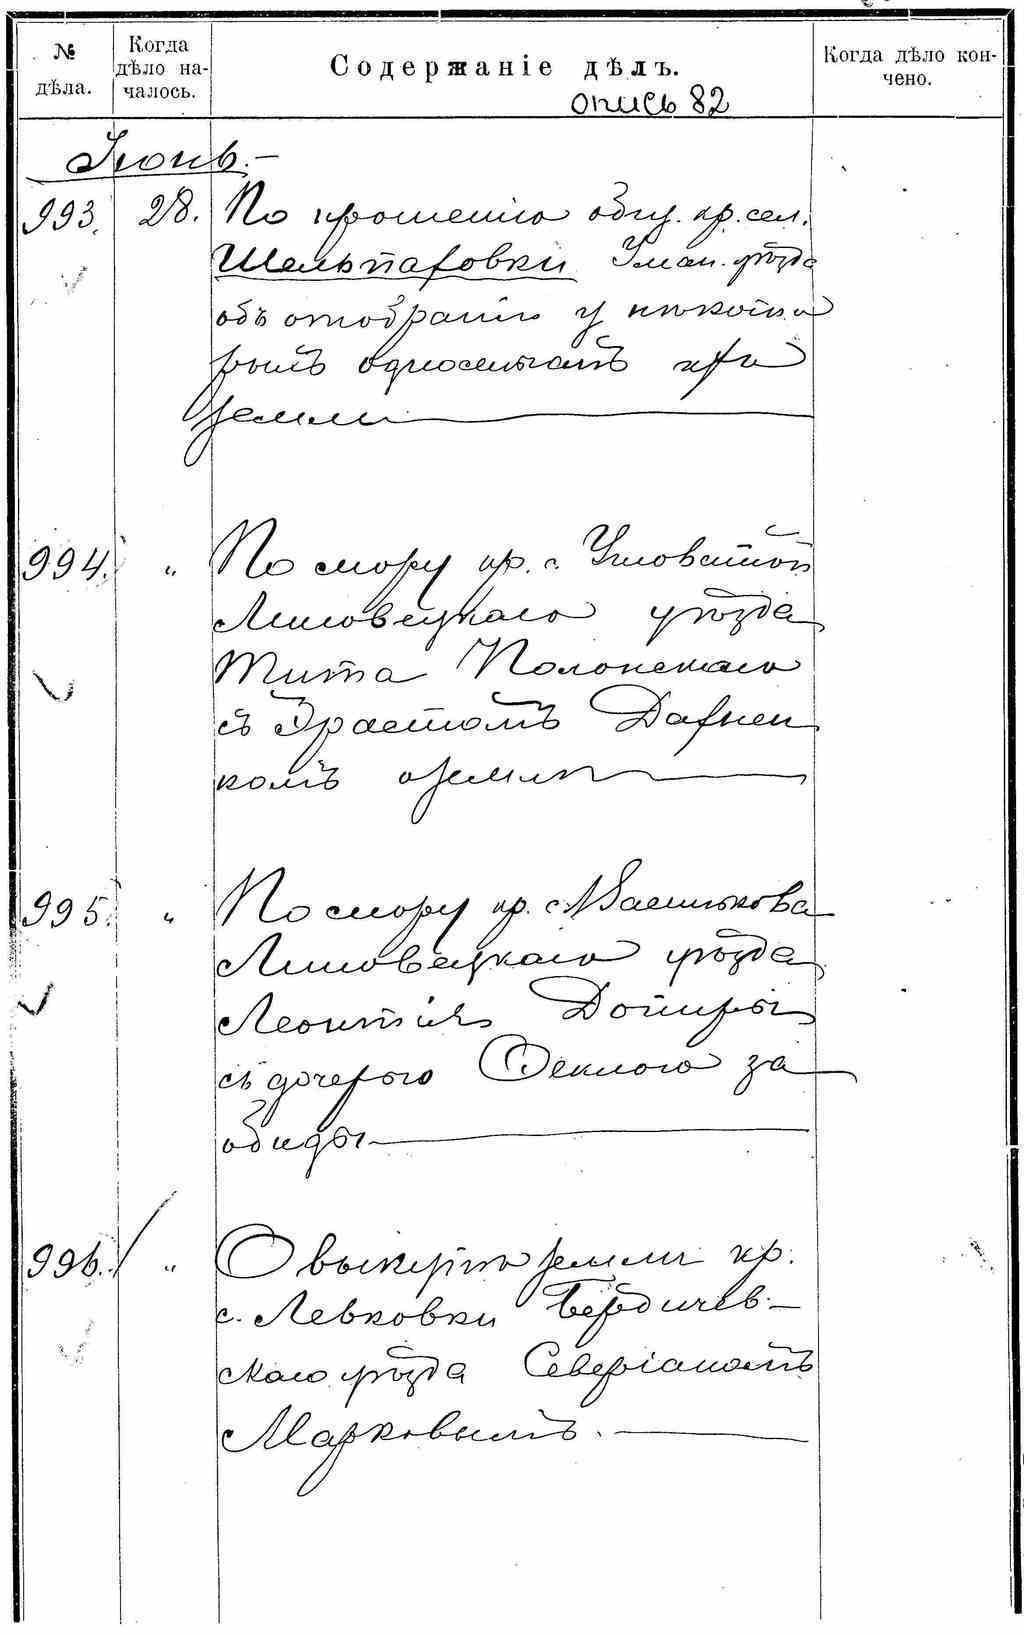 № дѣла.
Когда дѣло на-чалось.
Содержаніе дѣлъ.
Когда дѣло кон-чено.
опись 82
Іюнь.-
993. 28. По прошенію общ. кр. сел.
Шельпаховки Уман. уѣзда
объ отобраніи у нѣкото
рыхъ односельчанъ
земли
994. " По спору кр. с.
Липовецкаго уѣзда
Тита Полонскаго
съ Эрастомъ
комъ о землѣ
995. " По спору кр. с. Васильковa
Липовецкаго уѣзда
Леонтія
съ дочерью Феклою за
обиды
996. " О выкупѣ земли кр.
с. Левковки Бердичев-
скаго уѣзда Северіаномъ
Марковымъ.